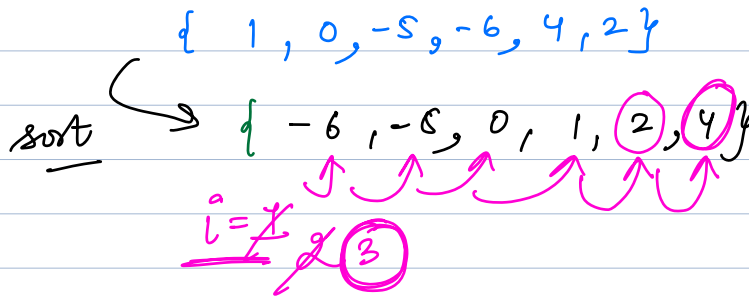 { 1, 0, -5, -6, 4, 2}
sort { -6, -5, 0, 1, 2, 4}
i = 1 2 3